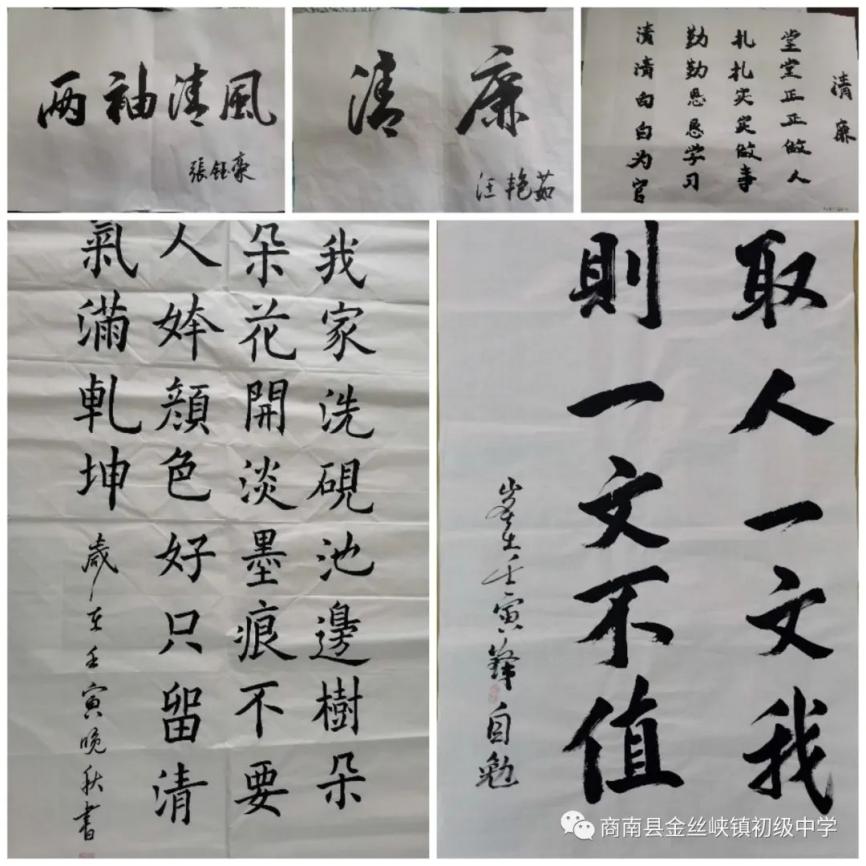 两袖清風
張钰豪
清廉
汪艳茹
清廉
堂堂正正做人
扎扎实实做事
勤勤恳恳学习
清清白白为官
我家洗硯池邊樹朵
朵花開淡墨痕不要
人姱顔色好只留清
氣滿乹坤
歲在壬寅晚秋書
取人一文我
則一文不值
岁在壬寅自勉
商南县金丝峡镇初级中学